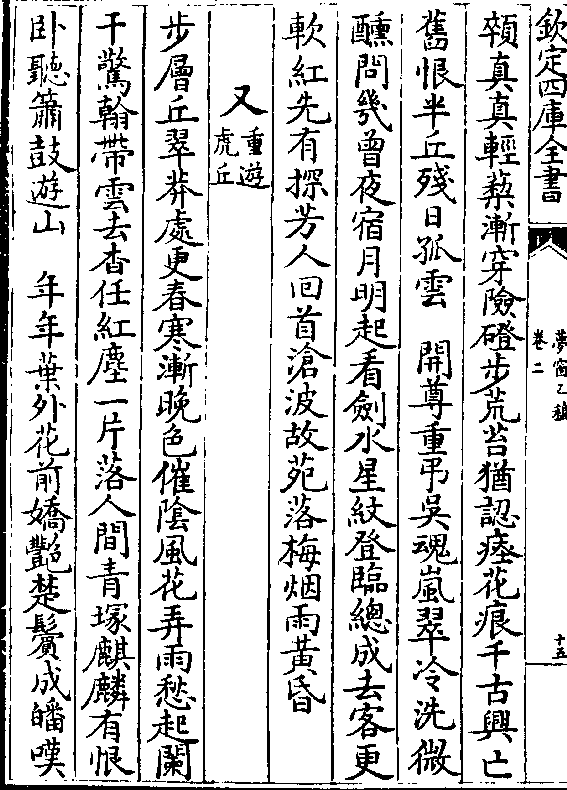 欽定四庫全書
夢窗乙稿
卷二
十五
頩真真輕藜漸穿險磴步荒苔猶認瘞花痕千古興亡
舊恨半丘殘日孤雲　開尊重弔吳魂嵐翠冷洗微
醺問幾曾夜宿月明起看劍水星紋登臨總成去客更
軟紅先有探芳人回首滄波故苑落梅烟雨黃昏
又重遊虎丘
步層丘翠莽處更春寒漸晚色催陰風花弄雨愁起闌
干驚翰帶雲去杳任紅塵一片落人間青塚麒麟有恨
卧聽簫鼓遊山　年年葉外花前嬌艷楚鬢成皤嘆